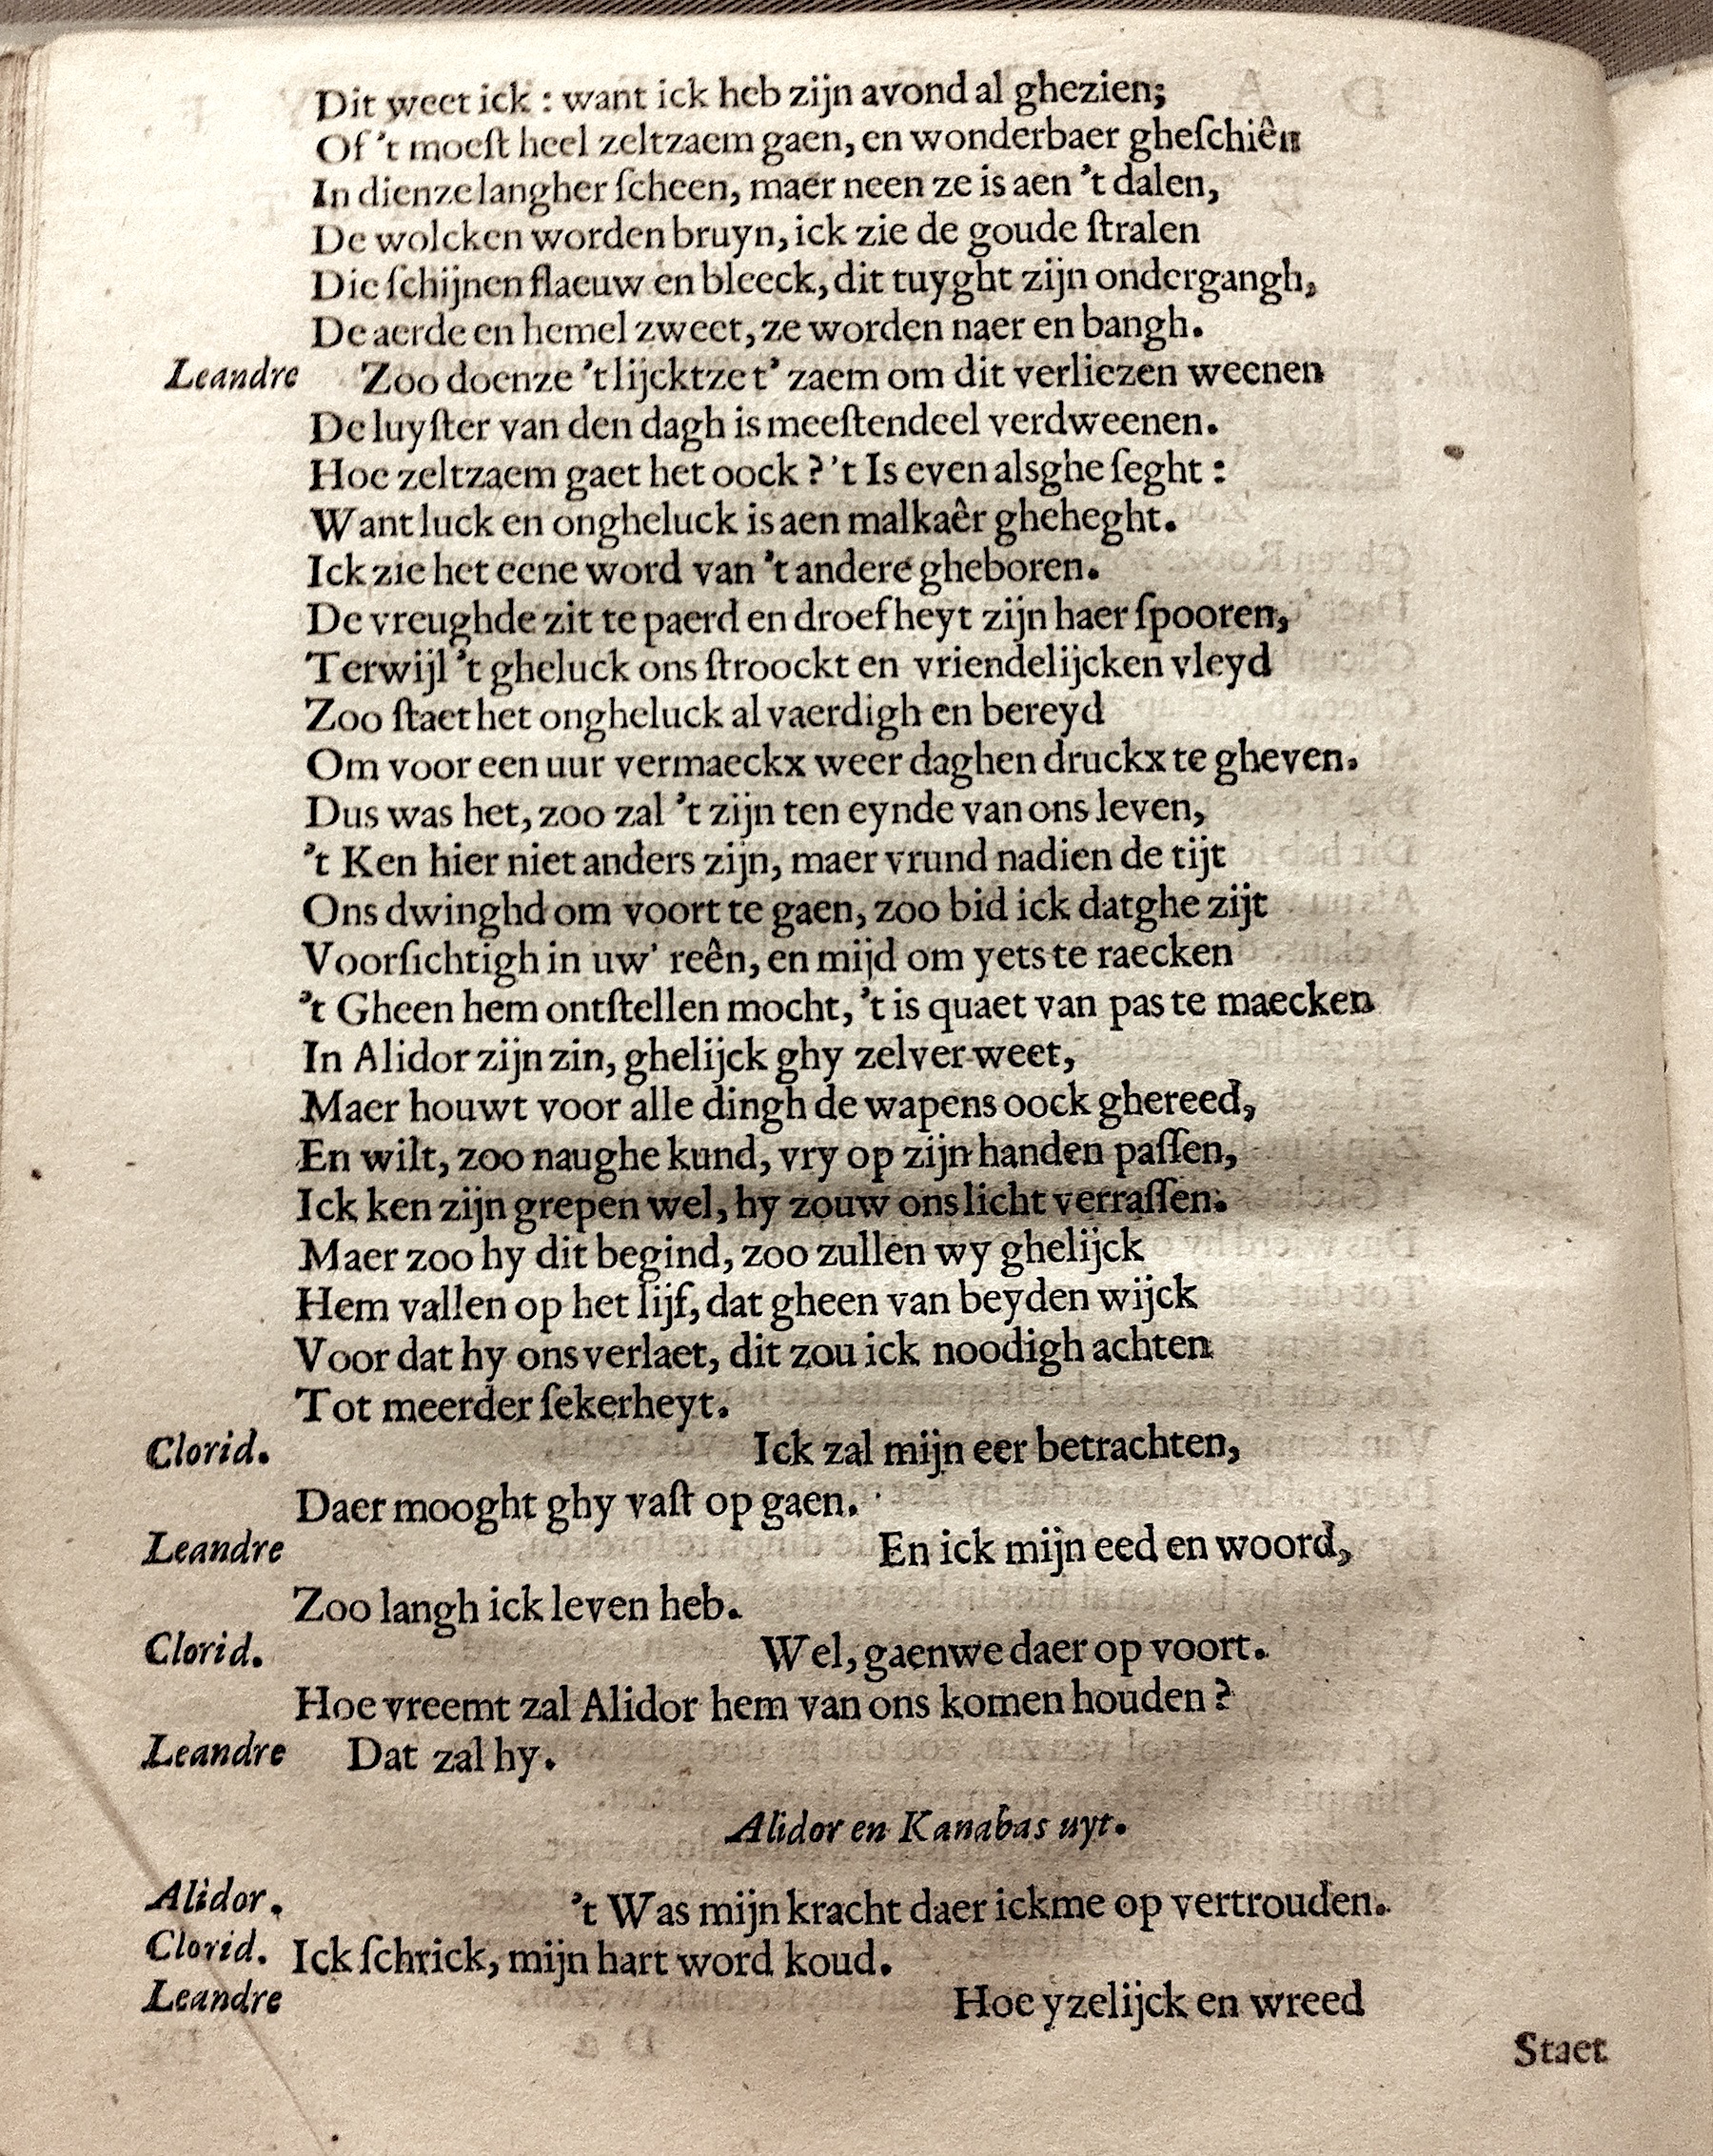 Dit weet ick : want ick heb zijn avond al ghezien;
Of 't moeſt heel zeltzaem gaen, en wonderbaer gheſchiên
In dienze langher ſcheen, maer neen ze is aen 't dalen,
De wolcken worden bruyn, ick zie de goude ſtralen
Die ſchijnen flaeuw en bleeck, dit tuyght zijn ondergangh,
De aerde en hemel zweet, ze worden naer en bangh.
Leandre Zoo doenze 't lijcktze t' zaem om dit verliezen weenen
De luyſter van den dagh is meeſtendeel verdweenen.
Hoe zeltzaem gaet het oock ? 't Is even alsghe ſeght :
Want luck en ongheluck is aen malkaêr gheheght.
Ick zie het eene word van 't andere gheboren.
De vreughde zit te paerd en droefheyt zijn haer ſpooren,
Terwijl 't gheluck ons ſtroockt en vriendelijcken vleyd
Zoo ſtaet het ongheluck al vaerdigh en bereyd
Om voor een uur vermaeckx weer daghen druckx te gheven.
Dus was het, zoo zal 't zijn ten eynde van ons leven,
't Ken hier niet anders zijn, maer vrund nadien de tijt
Ons dwinghd om voort te gaen, zoo bid ick datghe zijt
Voorſichtigh in uw' reên, en mijd om yets te raecken
't Gheen hem ontſtellen mocht, 't is quaet van pas te maecken
In Alidor zijn zin, ghelijck ghy zelver weet,
Maer houwt voor alle dingh de wapens oock ghereed,
En wilt, zoo naughe kund, vry op zijn handen paſſen,
Ick ken zijn grepen wel, hy zouw ons licht verraſſen.
Maer zoo hy dit begind, zoo zullen wy ghelijck
Hem vallen op het lijf, dat gheen van beyden wijck
Voor dat hy ons verlaet, dit zou ick noodigh achten
Tot meerder ſekerheyt.
Clorid. Ick zal mijn eer betrachten,
Daer mooght ghy vaſt op gaen.
Leandre En ick mijn eed en woord,
Zoo langh ick leven heb.
Clorid. Wel, gaenwe daer op voort.
Hoe vreemt zal Alidor hem van ons komen houden ?
Leandre Dat zal hy.
Alidor en Kanabas uyt.
Alidor. 't Was mijn kracht daer ickme op vertrouden.
Clorid. Ick ſchrick, mijn hart word koud.
Leandre Hoe yzelijck en wreed
Staet